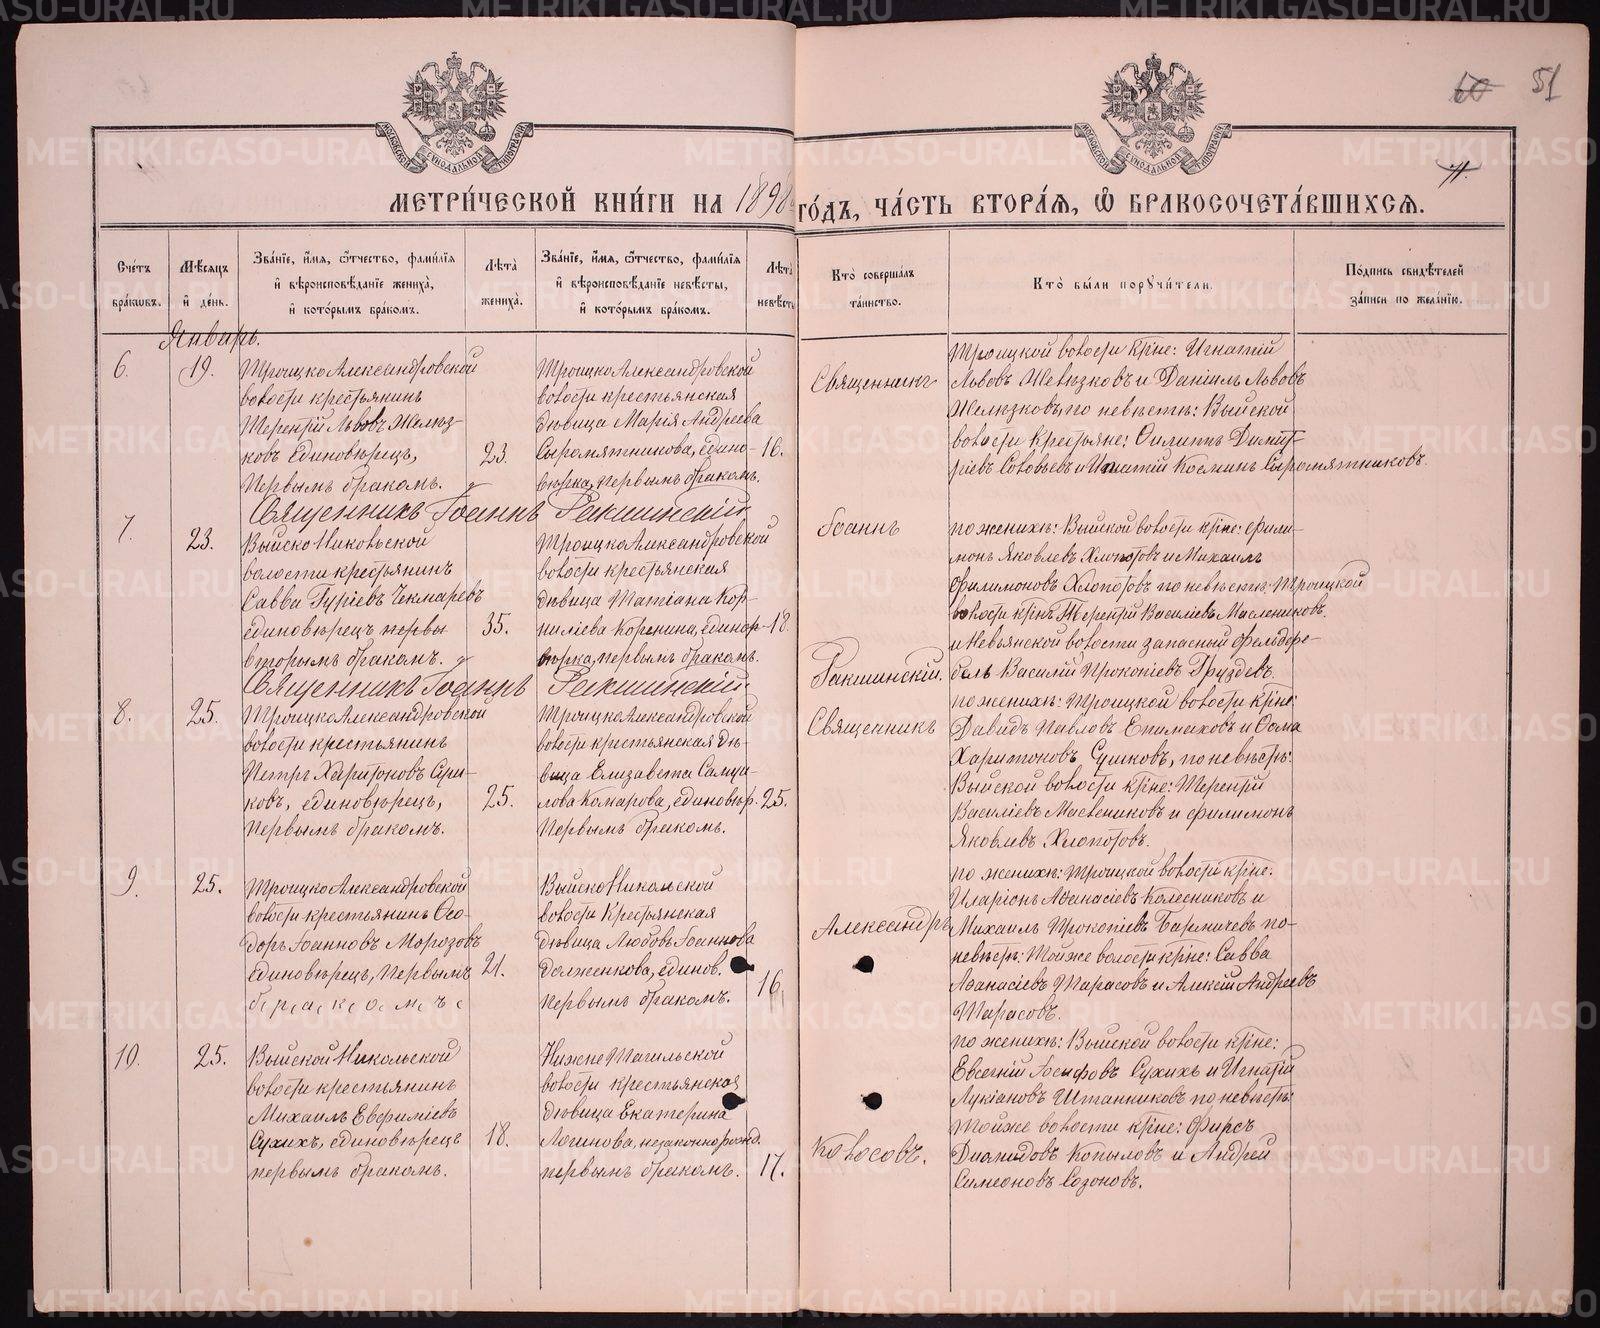 60 51
11.
МЕТРИ́ЧЕСКОЙ КНИ́ГИ НА 1898 ГО́ДЪ, ЧА́СТЬ ВТОРА́Я, Ѡ҆ БРАКОСОЧЕТА́ВШИХСЯ.
Сче́тъ бра́кѡвъ.
Мѣ́сяцъ и҆ де́нь.
Зва́нїе, и҆́мя, ѻ҆́тчество, фами́лїя
и҆ вѣроисповѣ́данїе жениха̀,
и҆ кото́рымъ бра́комъ.
Лѣ́та жениха̀.
Зва́нїе, и҆́мя, ѻ҆́тчество, фами́лїя
и҆ вѣроисповѣ́данїе невѣ́сты,
и҆ кото́рымъ бра́комъ.
Лѣ́та невѣ́сты
Кто̀ соверша́лъ
та́инство.
Кто̀ бы́ли порꙋчи́тели.
По́дпись свидѣ́телей
за́писи по жела́нїю.
Январь.
6.
19.
Троицко Александровской
волости крестьянинъ
Терентій Львовъ Желѣз-
ковъ единовѣрецъ,
первымъ бракомъ.
23.
Троицко Александровской
волости крестьянская
дѣвица Марія Андреева
Сыромятникова, едино-
вѣрка, первымъ бракомъ.
16.
Священникъ
Троицкой волости кр҃не: Игнатій
Львовъ Желѣзковъ и Даніилъ Львовъ
Желѣзковъ, по невѣстѣ: Выйской
волости крестьяне: Филиппъ Димит-
ріевъ Соловьевъ и Игнатій Косминъ Сыромятниковъ.
Священникъ Іоаннъ Ракшинскій
7.
23.
Выйско Никольской
волости крестьянинъ
Савва Гуріевъ Чекмаревъ
единовѣрецъ первы
вторымъ бракомъ.
35.
Троицко Александровской
волости крестьянская
дѣвица Татіана Кор-
ниліева Коренина, единов-
вѣрка, первымъ бракомъ.
18.
Іоаннъ
по женихѣ: Выйской волости кр҃не: Фили-
монъ Яковлевъ Хлопотовъ и Михаилъ
Филимоновъ Хлопотовъ по невѣстѣ: Троицкой
волости кр҃нъ Терентій Василіевъ Маслениковъ.
и Невьянской волости запасный фельдфе-
бель Василій Прокопіевъ Груздевъ.
Ракшинскій.
Священникъ Іоаннъ Ракшинскій.
8.
25.
Троицко Александровской
волости крестьянинъ
Петръ Харитоновъ Суш-
ковъ, единовѣрецъ,
первымъ бракомъ.
25.
Троицко Александровской
волости крестьянская дѣ-
вица Елизавета Самуи-
лова Комарова, единовѣр.
первымъ бракомъ.
25.
Священникъ
по женихѣ: Троицкой волости кр҃не:
Давидъ Павловъ Епимаховъ и Ѳома
Харитоновъ Сушковъ, по невѣстѣ:
Выйской волости кр҃не: Терентій
Василіевъ Маслениковъ и Филимонъ
Яковлевъ Хлопотовъ.
9.
25.
Троицко Александровской
волости крестьянинъ Ѳео-
доръ Іоанновъ Морозовъ
единовѣрецъ, первымъ
бракомъ.
21.
Выйско Никольской
волости Крестьянская
дѣвица Любовь Іоаннова
Долженкова, единов.
первымъ бракомъ.
16
Александръ
по женихѣ: Троицкой волости кр҃не:
Иларіонъ Аѳанасіевъ Колесниковъ и
Михаилъ Прокопіевъ Бармичевъ по-
невѣстѣ: Той же волости кр҃не: Савва
Аѳанасіевъ Тарасовъ и Алексій Андреевъ
Тарасовъ.
10.
25.
Выйской Никольской
волости крестьянинъ
Михаилъ Евфиміевъ
Сухихъ, единовѣрецъ
первымъ бракомъ.
18.
Нижне Тагильской
волости крестьянская
дѣвица Екатерина
Логинова, незаконнорожд.
первымъ бракомъ.
17.
Колосовъ.
по женихѣ: Выйской волости кр҃не:
Евсегній Іосифовъ Сухихъ и Игнатій
Лукіановъ Штанниковъ по невѣстѣ:
Той же волости кр҃не: Фирсъ
Диамидовъ Копыловъ и Андрей
Симеоновъ Созоновъ.